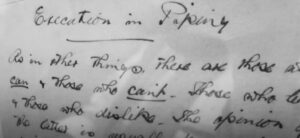 Execution in Piping
As in other things, there are those who
can & those who can't. Those who
& those who dislike. The opinion
the latter is